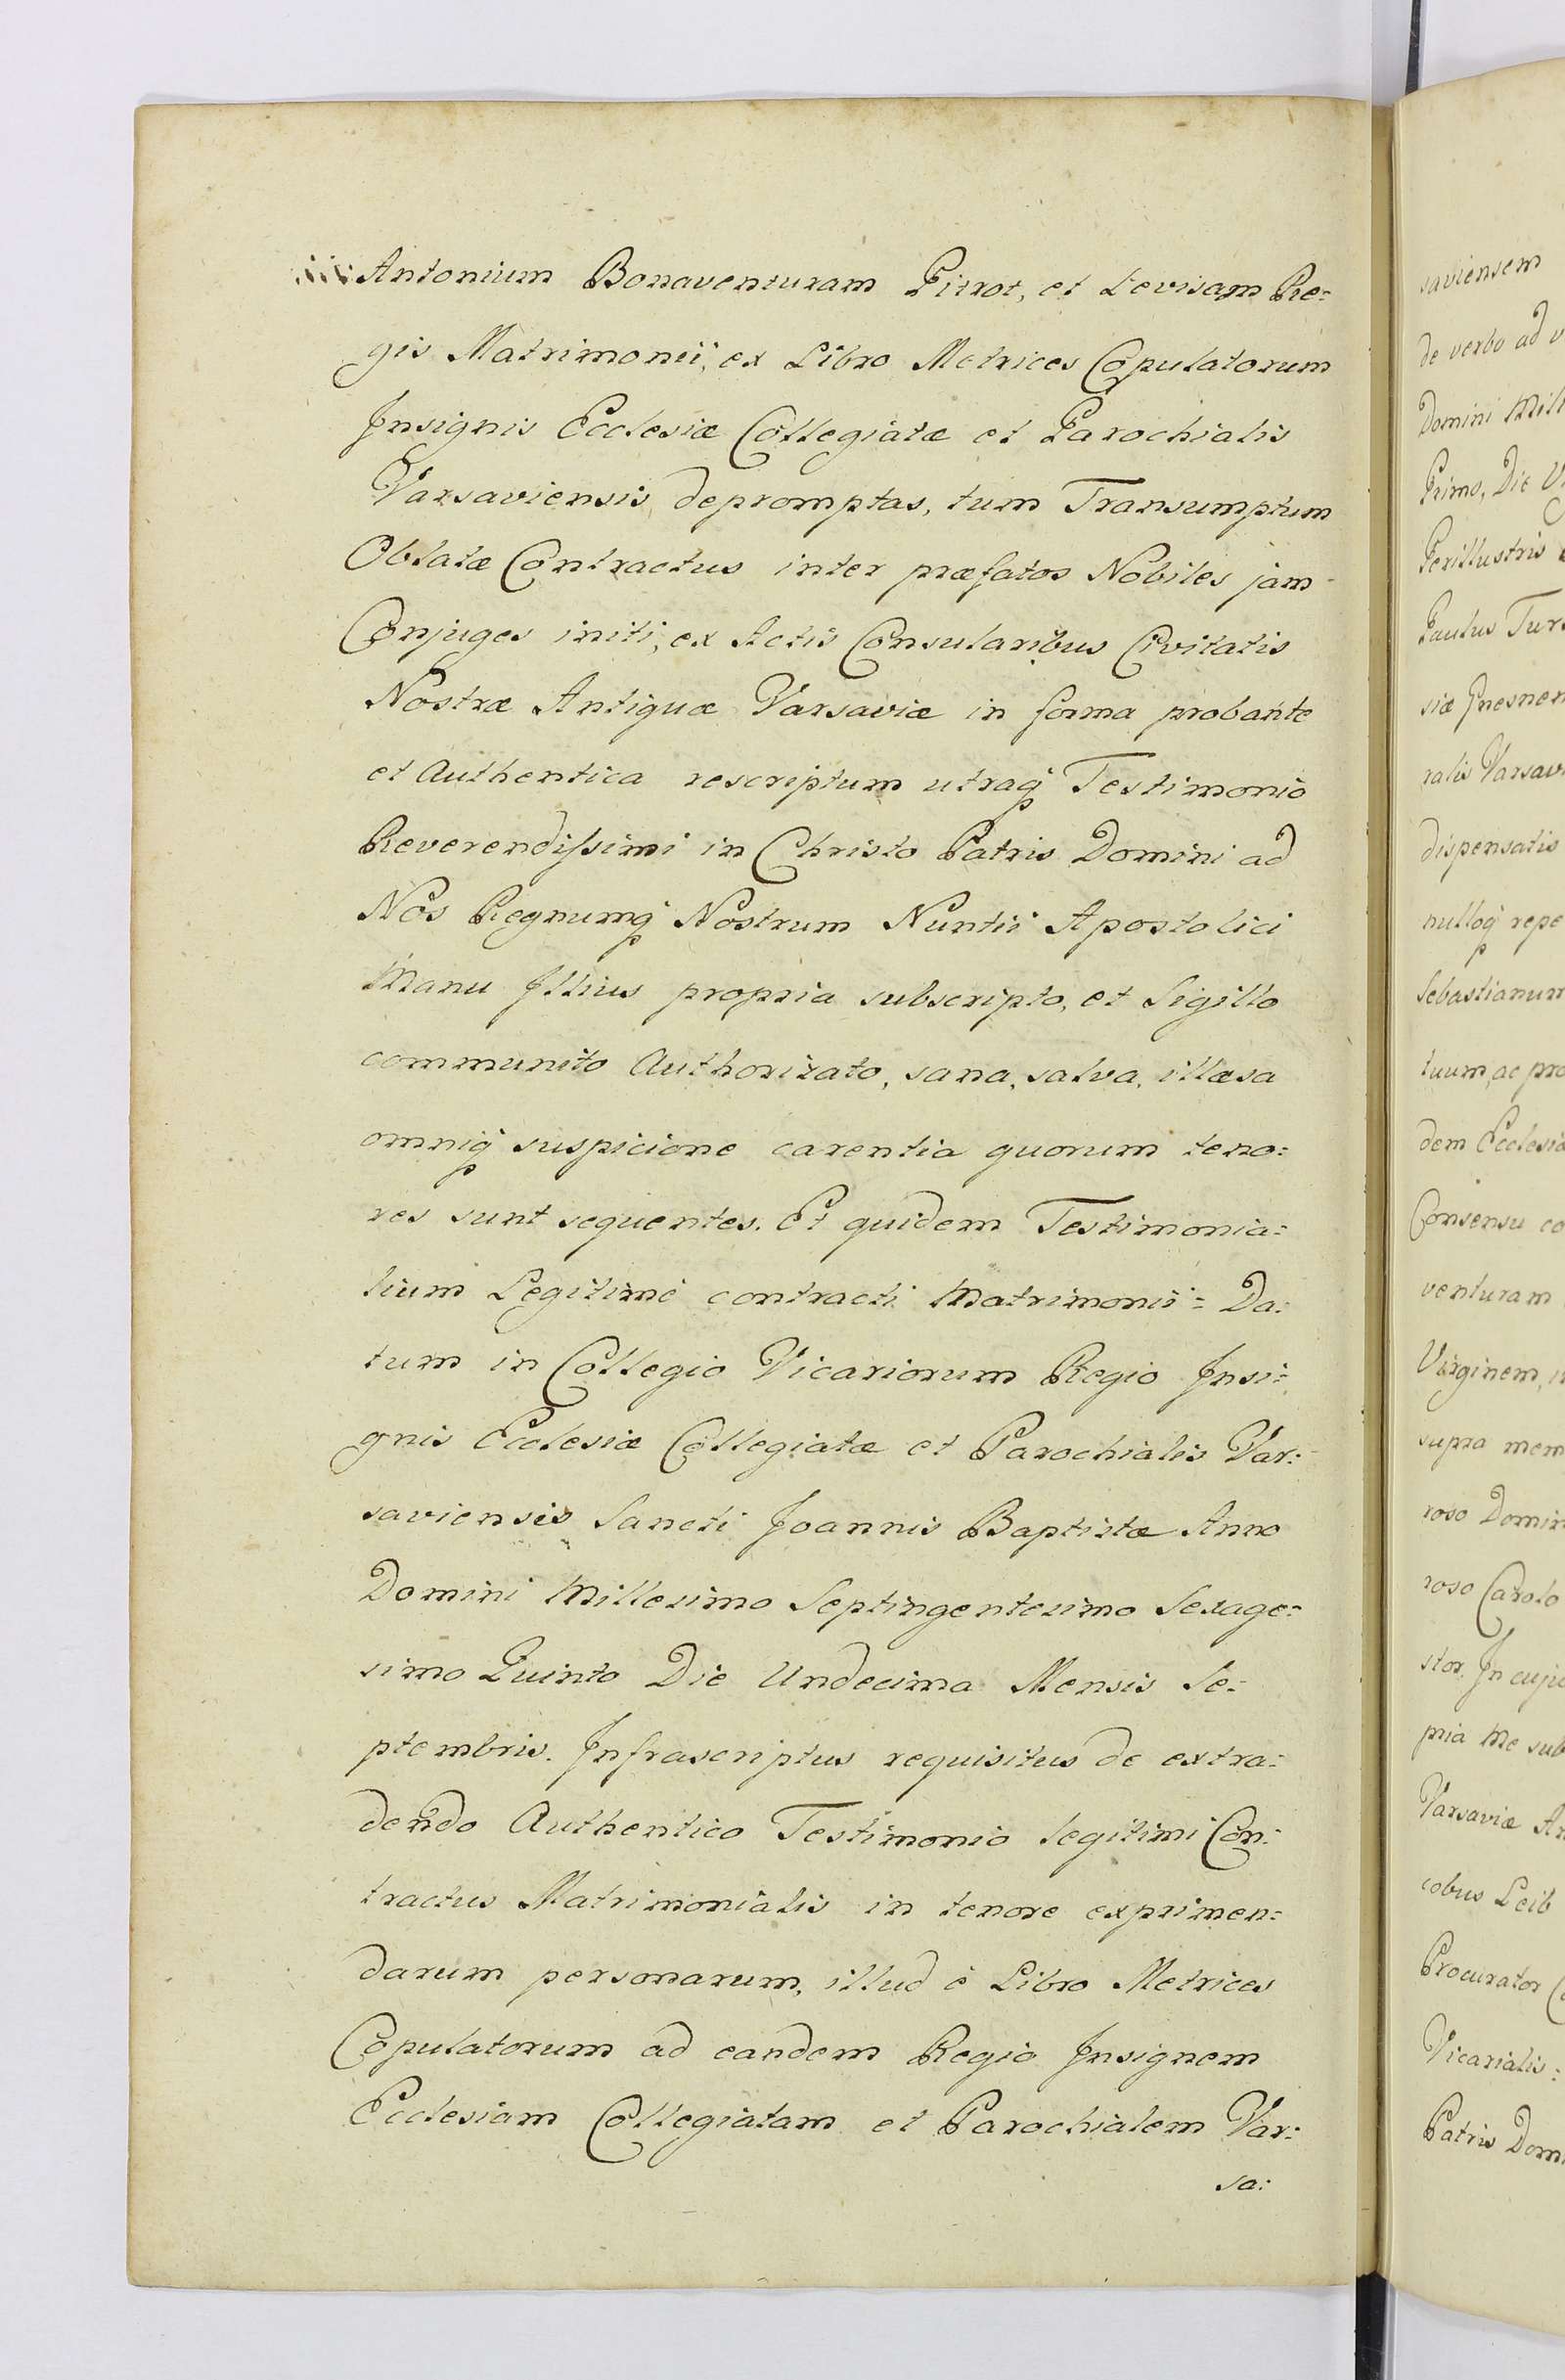 Antonium Bonaventuram Pitrot, et Levisam Re=
gis Matrimonii, ex Libro Metrices Copulatorum
Insignis Ecclesiæ Collegiatæ et Parochialis
Varsaviensis depromptas, tum Transumptum
Oblatæ Contractus inter præfatos Nobiles jam
Conjuges initi, ex Actis Consularibus Civitatis
Nostræ Antiquæ Varsaviæ in forma probante
et Authentica rescriptum utraq́ Testimonio
Reverendiſsimi in Christo Patris Domini ad
Nos Regnumq́ Nostrum Nuntii Apostolici
Manu Illius propria subscripto, et Sigillo
communito Authorizato, sana, salva, illæsa
omniq́ suspicione carentia quorum teno=
res sunt sequentes. Et quidem Testimonia=
lium Legitimè contracti Matrimonii = Da=
tum in Collegio Vicariorum Regio Insi=
gnis Ecclesiæ Collegiatæ et Parochialis Var=
saviensis Sancti Joannis Baptistæ Anno
Domini Millesimo Septingentesimo Sexage=
simo Quinto Die Undecima Mensis Se=
ptembris. Infrascriptus requisitus de extra=
dendo Authentico Testimonio legitimi Con=
tractus Matrimonialis in tenore exprimen=
darum personarum, illud è Libro Metrices
Copulatorum ad eandem Regio Insignem
Ecclesiam Collegiatam et Parochialem Var=
sa:
saviensem
de verbo ad v
Domini Mill
Primo, Die Vi
Perillustris
Paulus Turs
siæ Gnesnen
ralis Varsavi
dispensatis
nulloq́ repe
Sebastianum
tuum, ac pro
dem Ecclesia
Consensu co
venturam
Virginem, i
supra mem
roso Domin
roso Carolo
stor. In cuju
pria me sub
Varsaviæ An
cobus Leib
Procurator C
Vicarialis =
Patris Domi